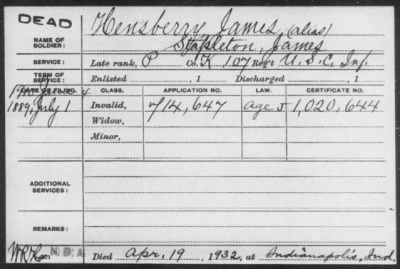 DEAD
Hensberry, James (alias)
NAME OF SOLDIER:
Stapleton, James
SERVICE: Late rank, P Co. K 107 Reg't U.S.C. Inf.
TERM OF SERVICE: Enlisted , 1 Discharged , 1
DATE OF FILING. CLASS. APPLICATION NO. LAW. CERTIFICATE NO.
1889, July 1 Invalid, 714,647 1,020,644
Widow,
Minor,
ADDITIONAL SERVICES:
REMARKS:
Died Apr. 19, 1932, at Indianapolis, Ind.